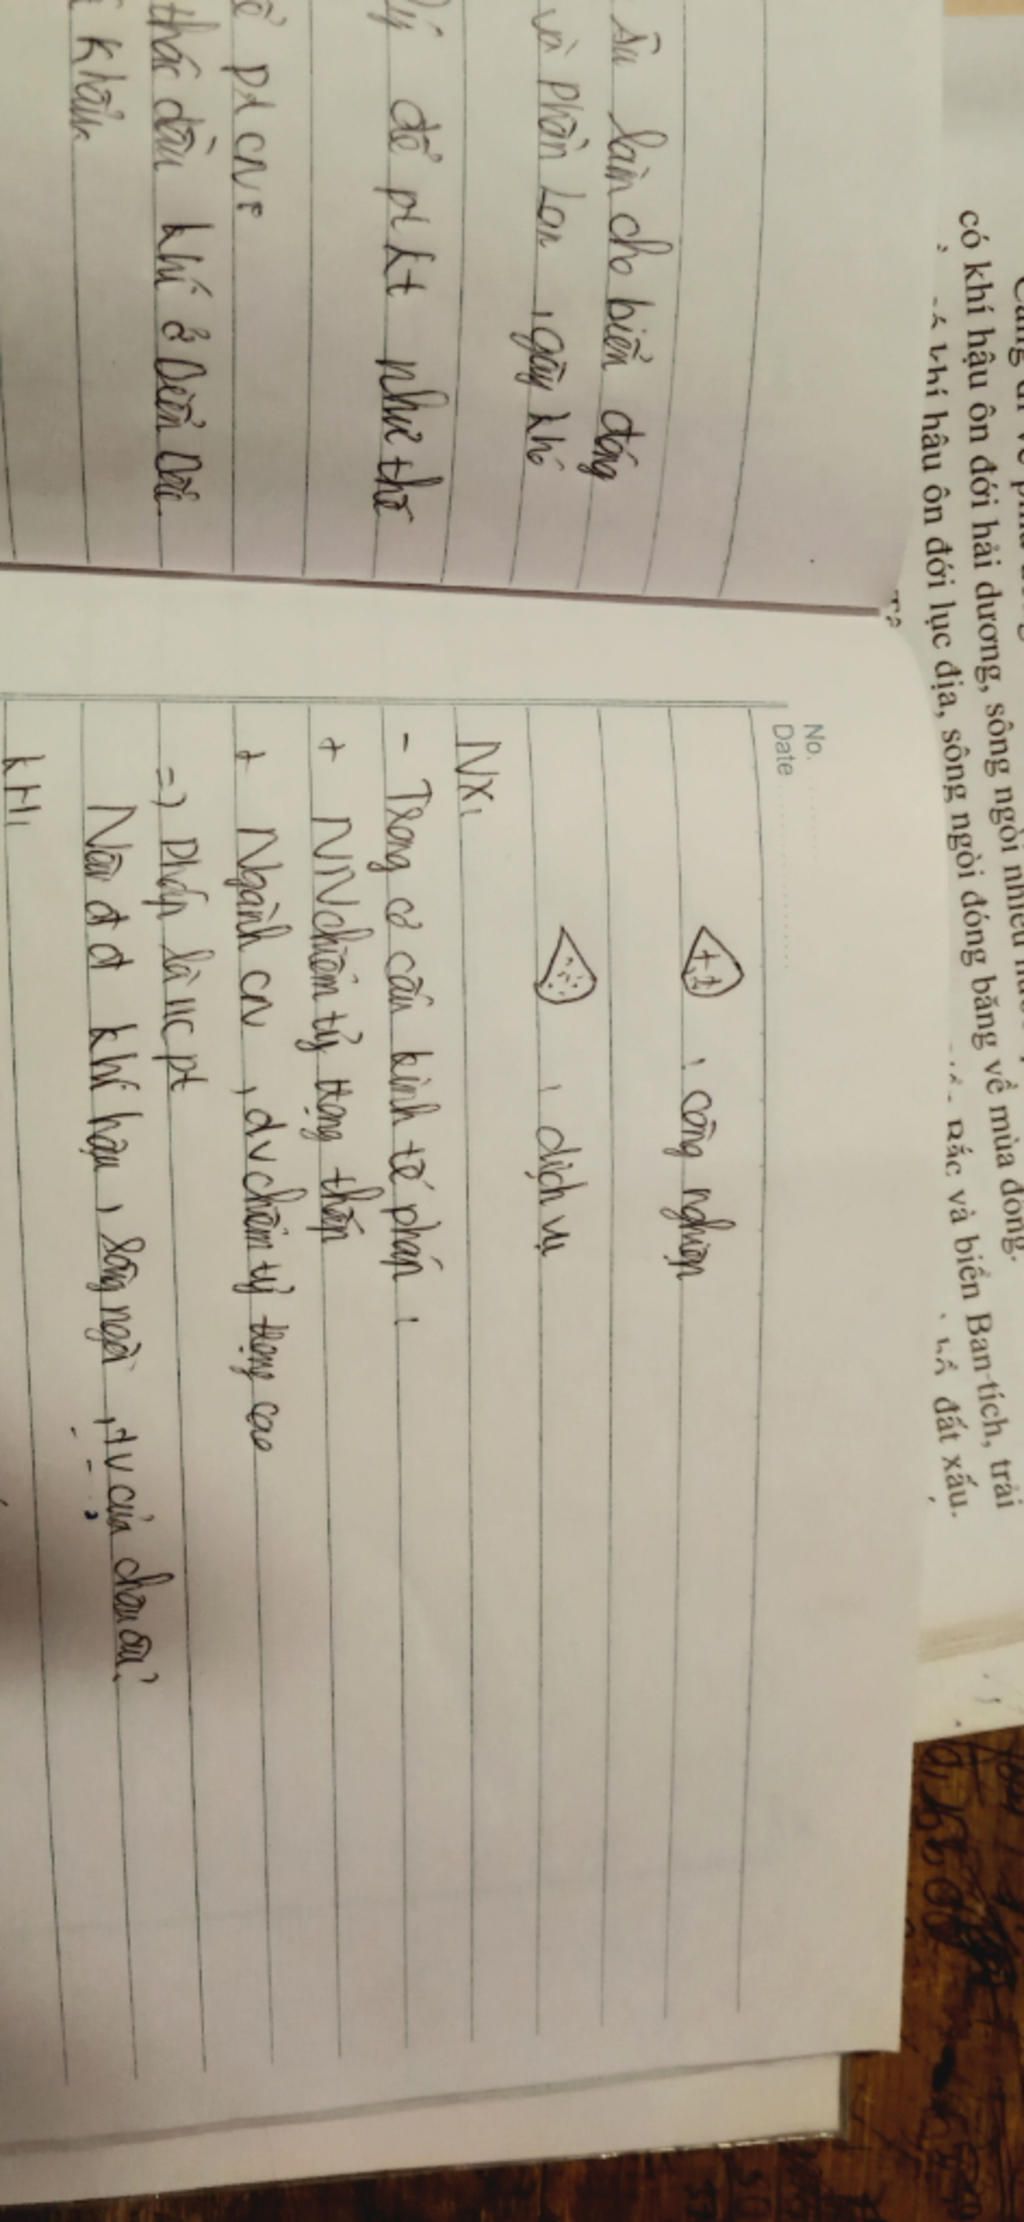 có khí hậu ôn đới hải dương, sông ngòi nhiều
khí hậu ôn đới lục địa, sông ngòi đóng băng về mùa đông.
Bắc và biển Ban-tích, trải
đất xấu.
làm cho biển đóng
và phần Lan, gây khó
để pt kt như thế
pt cn?
thác dầu khí ở Biển Bắc
khẩu
No.
Date
: công nghiệp
: dịch vụ
NX:
- Trong cơ cấu kinh tế pháp :
+ NN chiếm tỷ trọng thấp
+ Ngành cn, dv chiếm tỷ trọng cao
=) Pháp là nc pt
Nêu đđ khí hậu, sông ngòi, tv của châu âu?